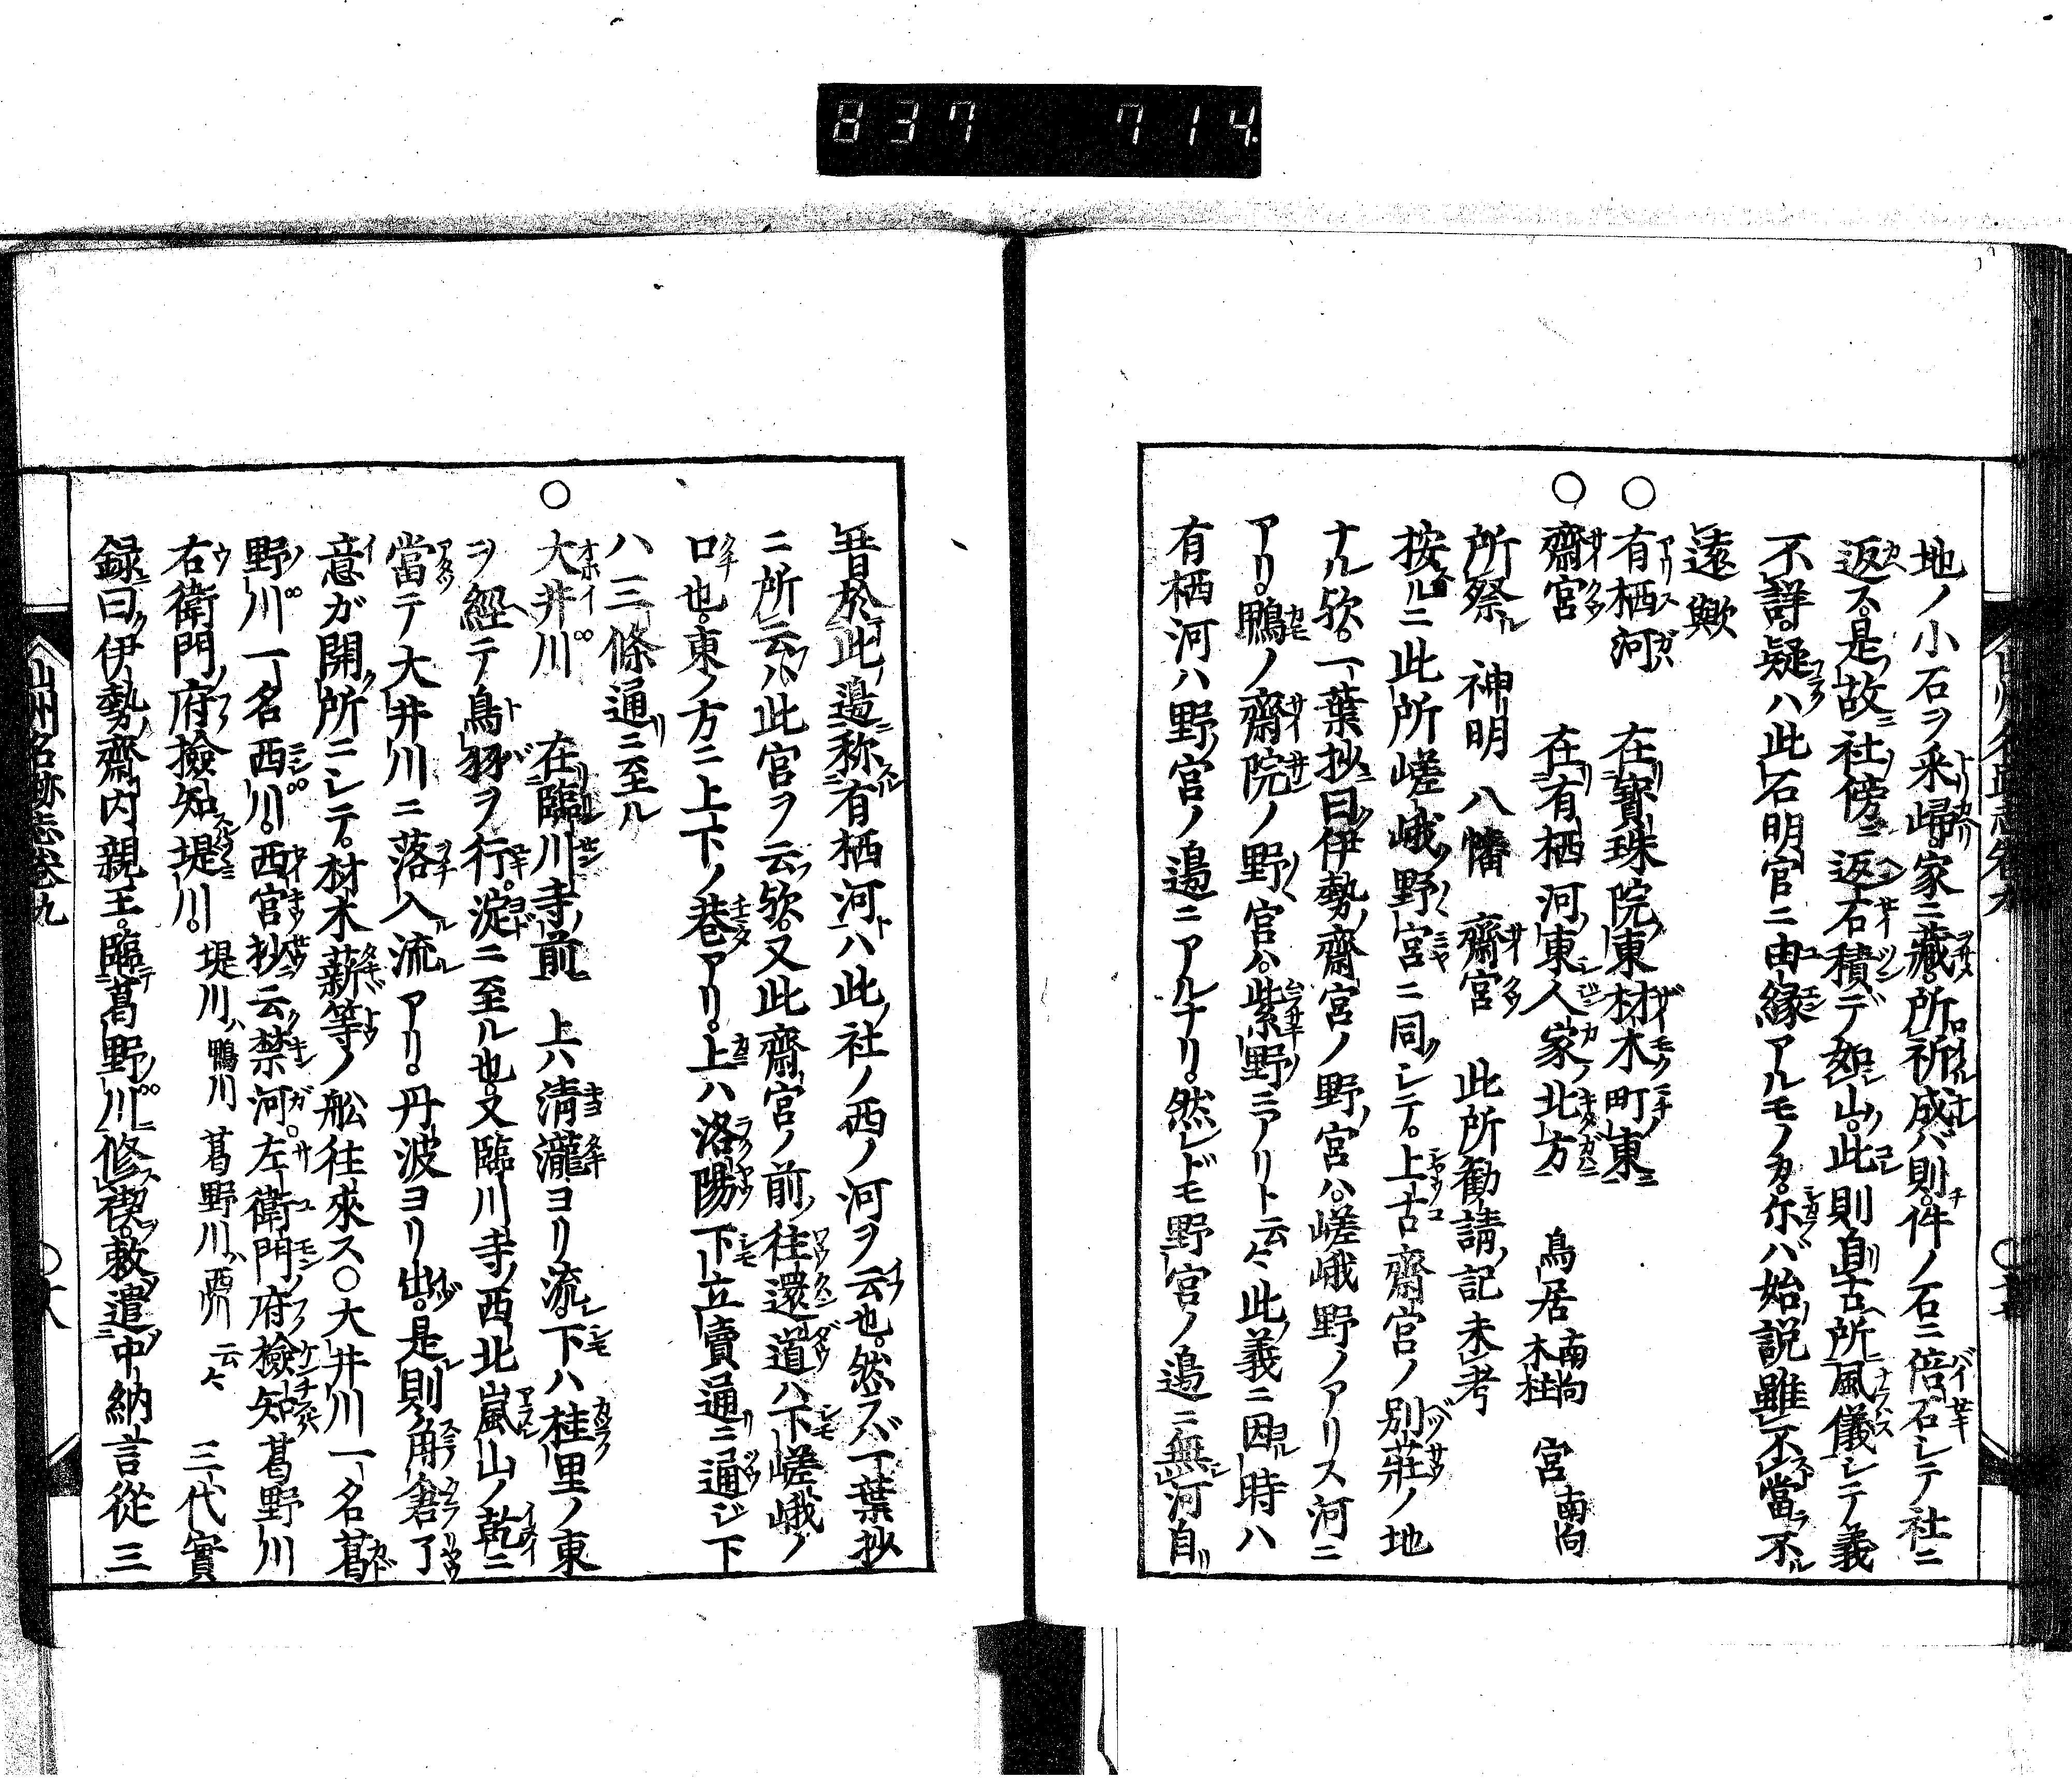 837 714
地ノ小石ヲ釆帰。家ニ藏。所祈成バ則。件ノ石ニ倍石シテ社ニ
返ス。是故ニ社傍ニ返石積デ如山。此則自古所風儀シテ義
不詳。疑ハ此石明官ニ由縁アルモノカ。尓バ始説雖不當不
遠歟
○有栖河 在寳珠院東材木町東
○齋宮 在有栖河東人家北方 鳥居 南向 木柱 宮 南向
所祭 神明 八幡 齋宮 此所勧請記未考
按ルニ此所嵯峨野宮ニ同シテ。上古齋宮ノ別莊ノ地
ナル欤。一葉抄曰伊勢齋宮ノ野宮ハ。嵯峨野ノアリス河ニ
アリ。鴨ノ齋院ノ野宮ハ。紫野ニアリト云々此義ニ因時ハ
有栖河ハ野宮ノ邉ニアルナリ。然レドモ野宮ノ邉ニ無河自
昔於此邉称有栖河ハ此社ノ西ノ河ヲ云也。然バ一葉抄
ニ所云ハ此宮ヲ云欤。又此齋宮ノ前往還道ハ下嵯峨ノ
口也。東ノ方ニ上下ノ巷アリ。上ハ洛陽下立賣通ニ通ジ下
ハ三條通ニ至ル
○大井川 在臨川寺前 上ハ清瀧ヨリ流。下ハ桂里ノ東
ヲ經テ鳥羽ヲ行。淀ニ至ル也。又臨川寺ノ西北嵐山ノ乾ニ
當テ大井川ニ落入流アリ。丹波ヨリ出。是則角倉了
意ガ開所ニシテ。材木薪等ノ舩往來ス○大井川一名葛
野川一名西川。西宮抄云禁河。左衛門府檢知葛野川
右衛門府撿知堤川。 堤川ハ鴨川葛野川ハ西川云々 三代實
録曰伊勢齋内親王。臨葛野川修禊。敕遣中納言從三
山州名跡志巻九